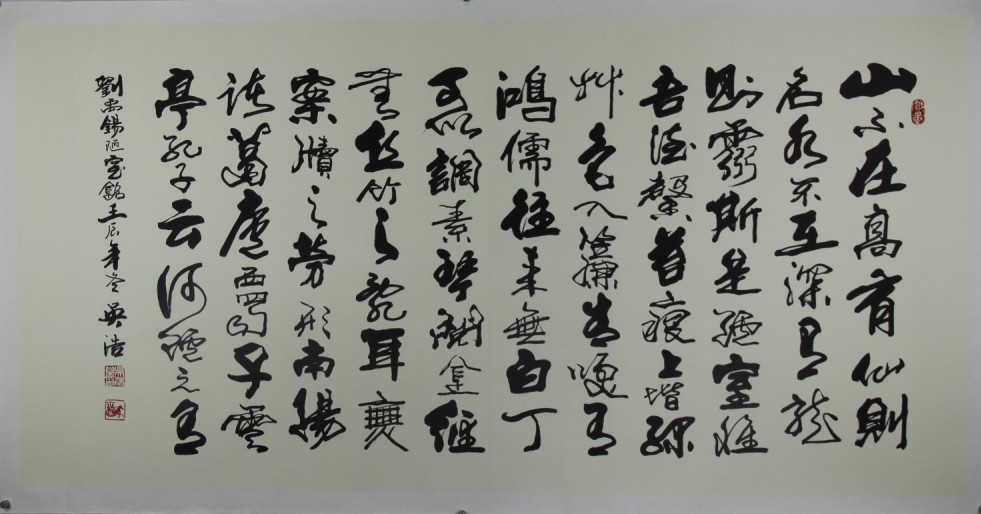 山不在高有仙則
名水不在深有龍
則靈斯是陋室惟
吾德馨苔痕上階綠
艸色入簾青有
鴻儒往來無白丁
可以調素琴閱金經
無絲竹之亂耳無
案牘之勞形南陽
諸葛廬西蜀子雲
亭孔子云何陋之有
劉禹錫陋室銘壬辰年冬吳浩